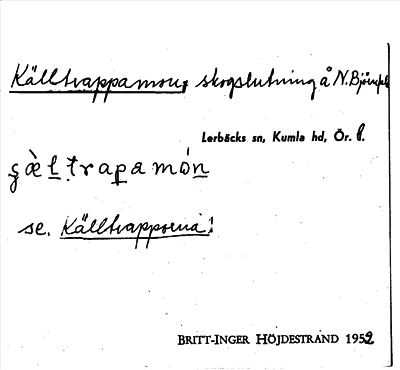 Källtrappamon, skogslutning å N. Björnfall
Lerbäcks sn, Kumla hd, Ör. l.
se. Källtrapporna!
BRITT-INGER HÖJDESTRAND 1952